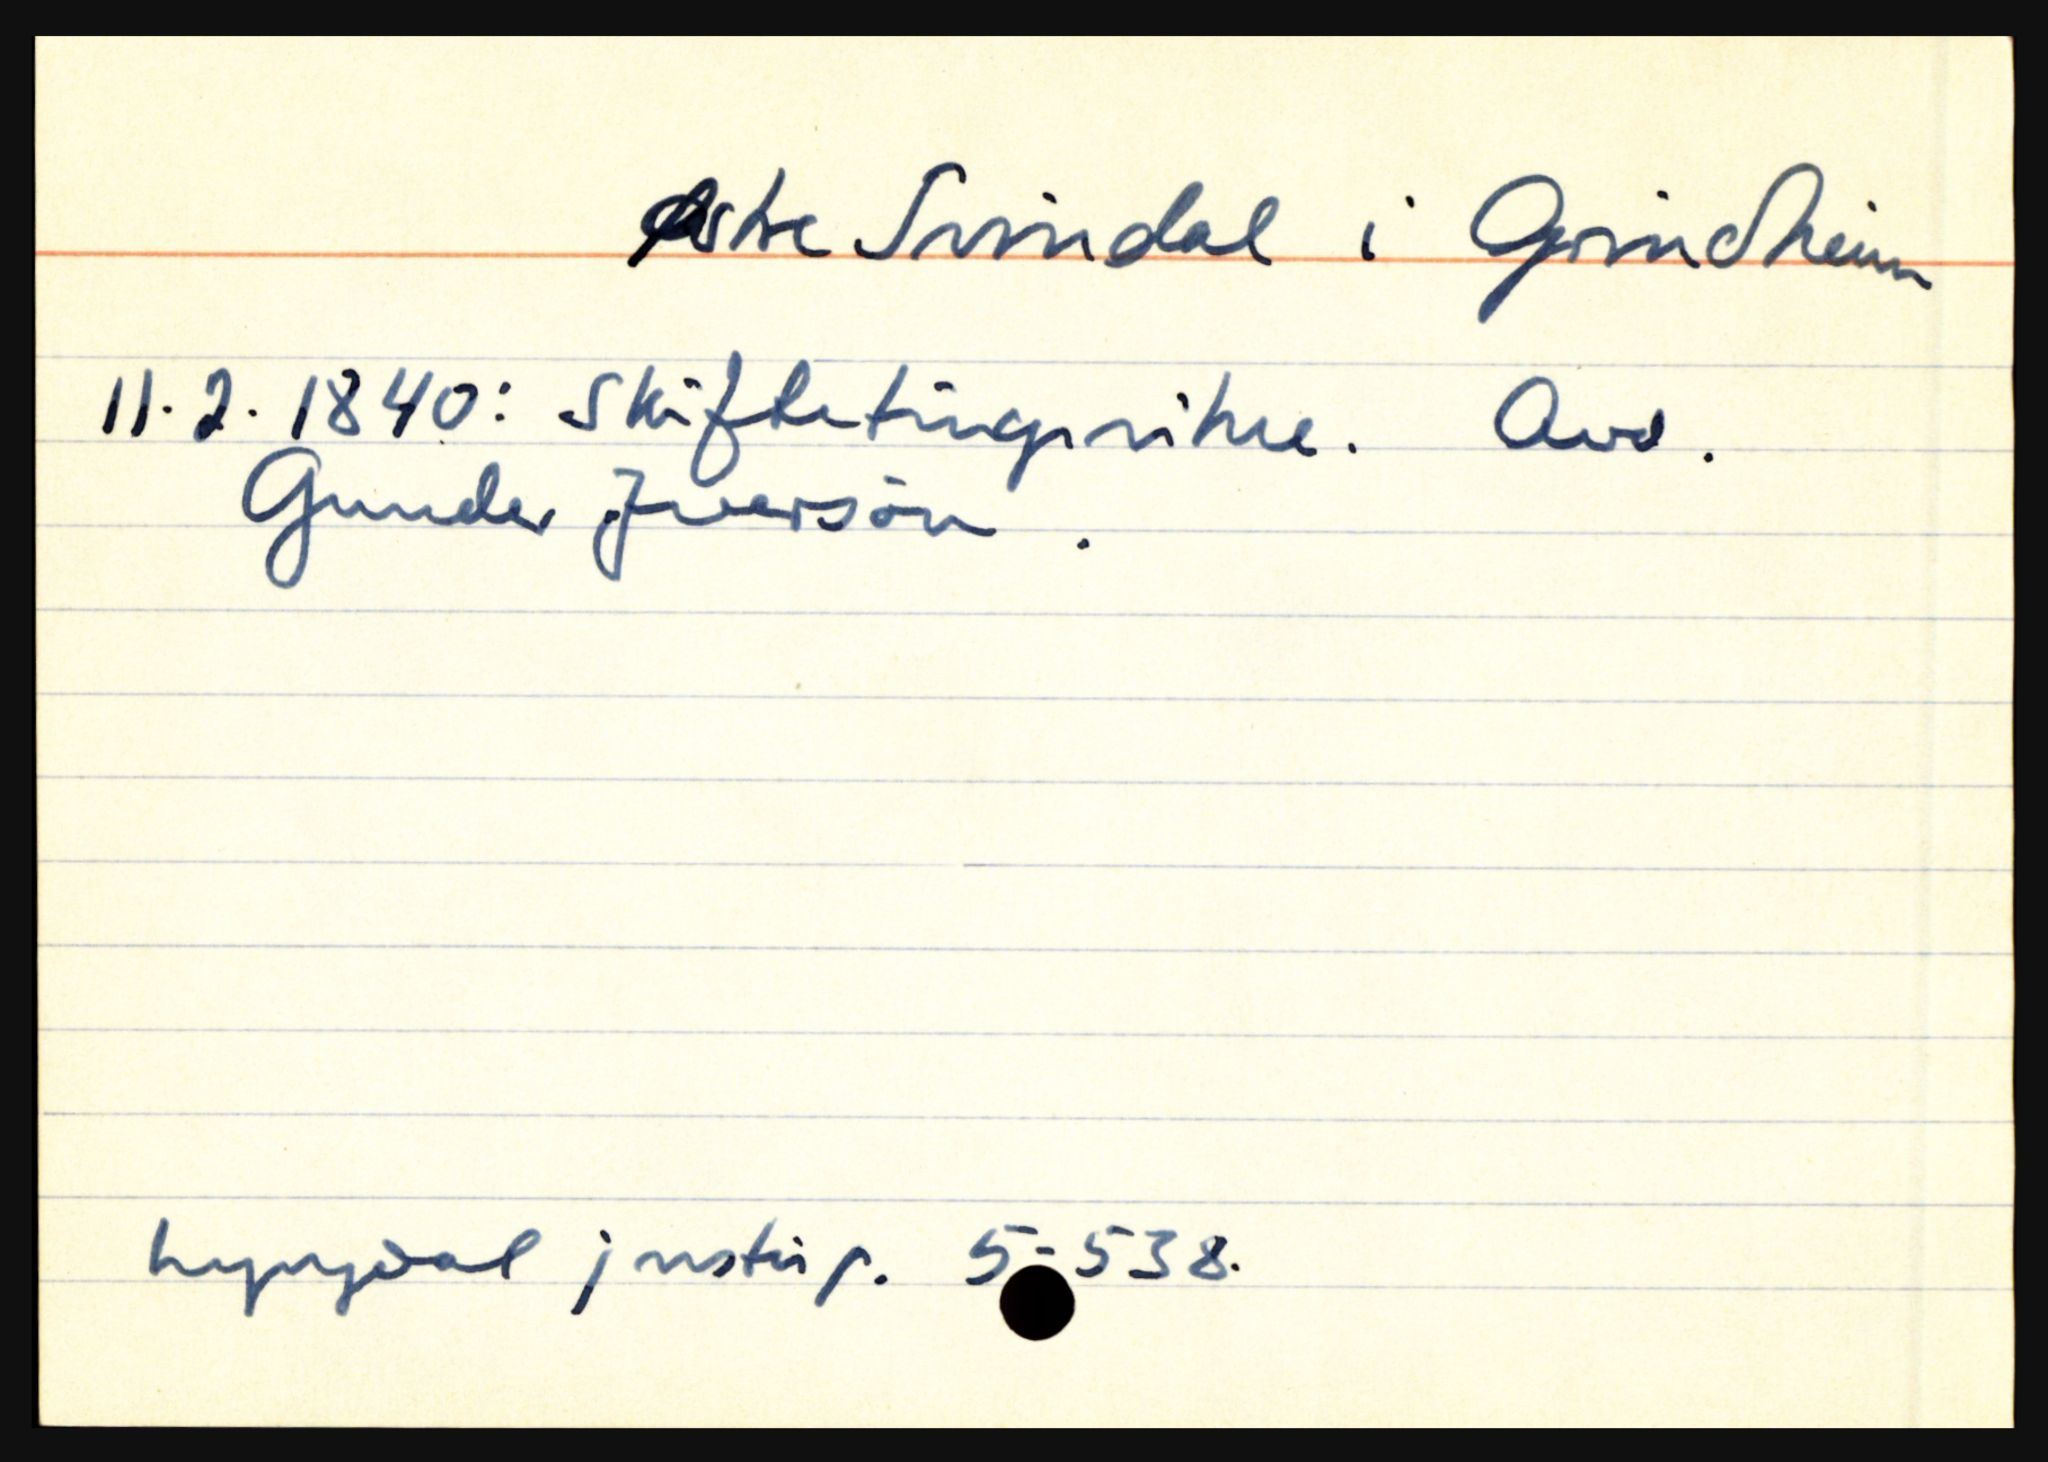 Østre Svindal i Grindheim
11.2. 1840: Skiftetingsvitne. Avd.
Gunder Iversön.
Lyngdal justisp. 5-538.